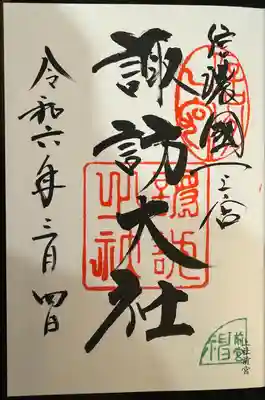 信濃國一之宮
諏訪大社
令和六年三月四日
諏訪
之社
上社前宮
前宮